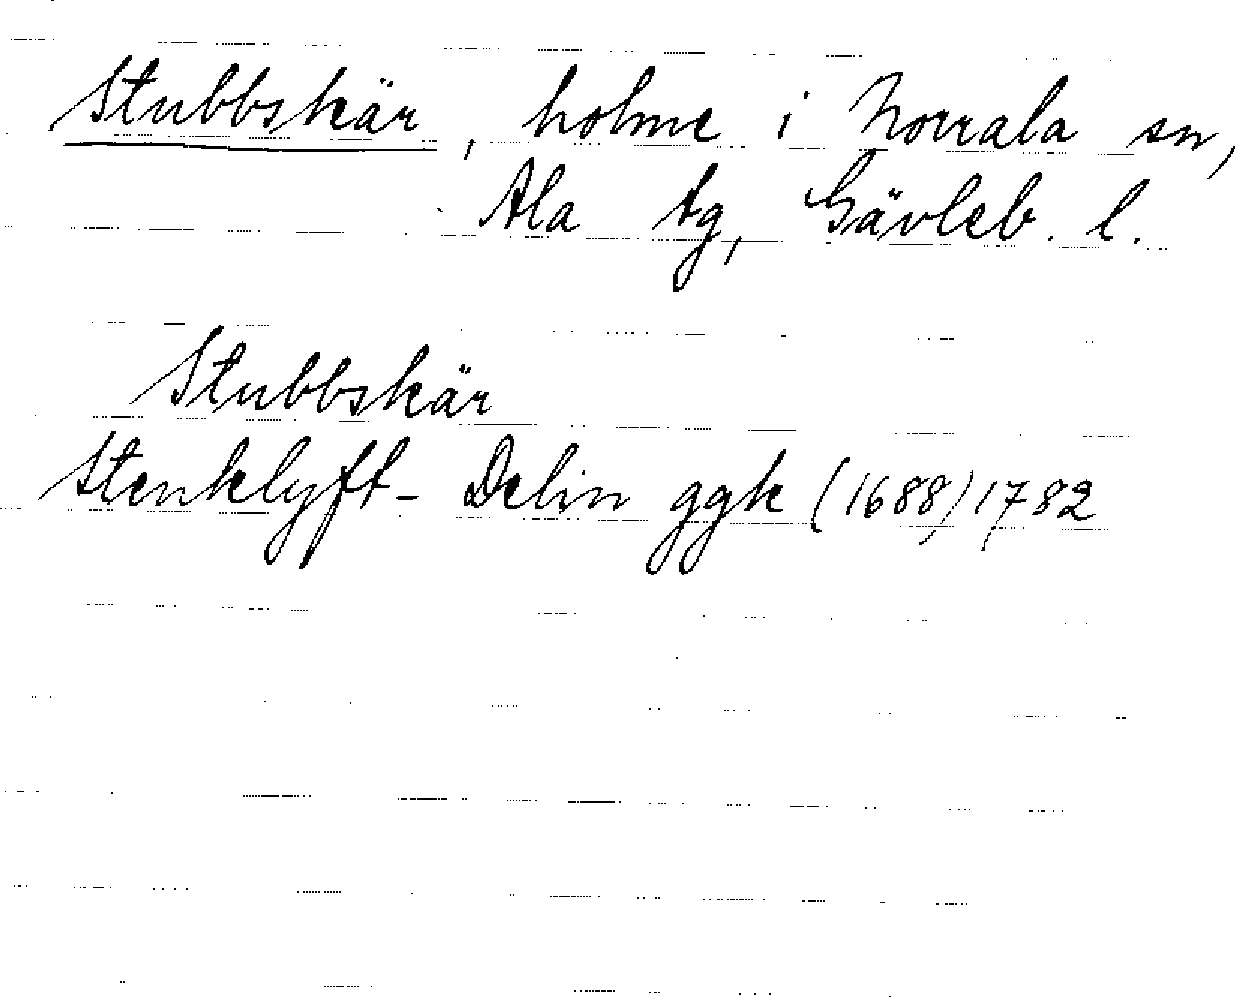 Stubbskär, holme i Norrala sn,
Ala tg, Gävleb. l.
Stubbskär
Stenklyft- Delin ggk (1688) 1782